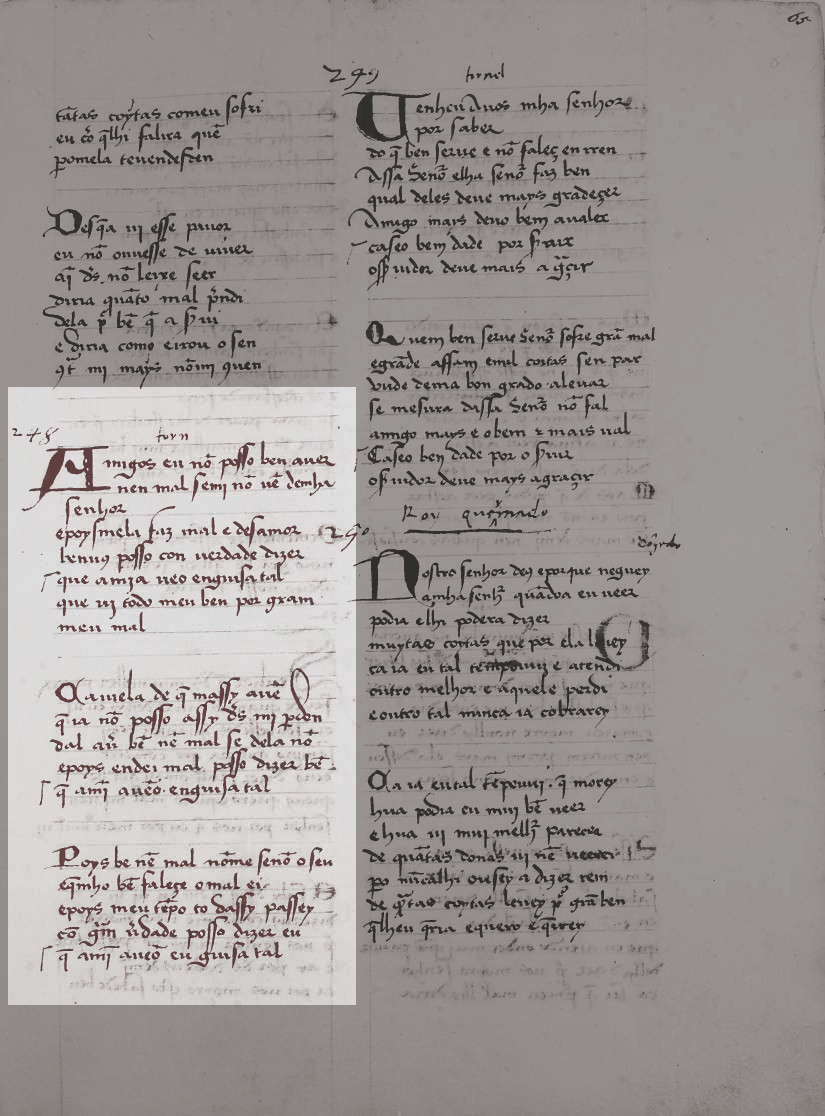 65
tãtas coytas comeu sofri
eu cõ q̃lhi falira quẽ
ꝑomela teuendesden
Desq̃a ui esse pauor
eu nõ ouuesse de uiuer
ai d̃s nõ leixe seer
diria quãto mal p̃ndi
dela ꝑ bẽ q̃ a s̃ui
e diria como eixou o sen
mi mays nõmi quen
248 torn
Amigos eu nõ posso ben auer
nen mal semi nõ uẽ demha
senhor
epoysmela faz mal e desamor
benuꝯ posso con uerdade dizer
que amia ueo enguisa tal
que ui todo meu ben por gram
meu mal
Ca mela de q̃ massy auẽ
q̃ ia nõ posso assy d̃s mi ꝑdon
dal au̾ bẽ nẽ mal se dela nõ
epoys endei mal posso dizer bẽ
q̃ amĩ aueo enguisa tal
Poys be nẽ mal nõme senõ o seu
eq̃mho bẽ faleçe o mal ei
epoys meu tẽpo to dassy passey
cõ grãm u̾dade posso dizer eu
q̃ amĩ aueo eu guisa tal
249 tornel
Tenheu Auos mha senhor
por saber
do q̃ ben serue e nõ faleç en rren
Assa senõ̾ elha senõ̾ faz ben
qual deles deue mays gradeçer
Amigo mais deuo bem aualer
caseo bem dade por s̃uir
os̃uidor deue mais a g̃çir
Quem ben serue senõ̾ sofre grã mal
egrãde affam emil coitas sen par
unde deuia bon grado aleuar
se mesura dassa senõ̾ nõ fal
amigo mays e obem ⁊ mais ual
Caseo ben dade por o s̃uir
os̃uidor deue mays agraçir
Roy queymado
250
Nostro senhor deꝯ eporque neguey
amha senh̾ quãdoa eu ueer
podia elhi podera dizer
muytas coitas que por ela leuey
ca ia eu tal tẽpouuj e atendi
outro melhor e aquele perdi
eoutro tal nunca ia cobrarey
Ca ia eutal tẽpouui q̃ morey
hua podia eu mui bẽ ueer
e hua ui mui melh̾ pareçer
de quãtas donas ui nẽ ueerei
ꝑo nũcalhi ousey a dizer rem
de q̃tas coytas leuey ꝑ grã ben
q̃lheu q̃ria equero e q̃rrey